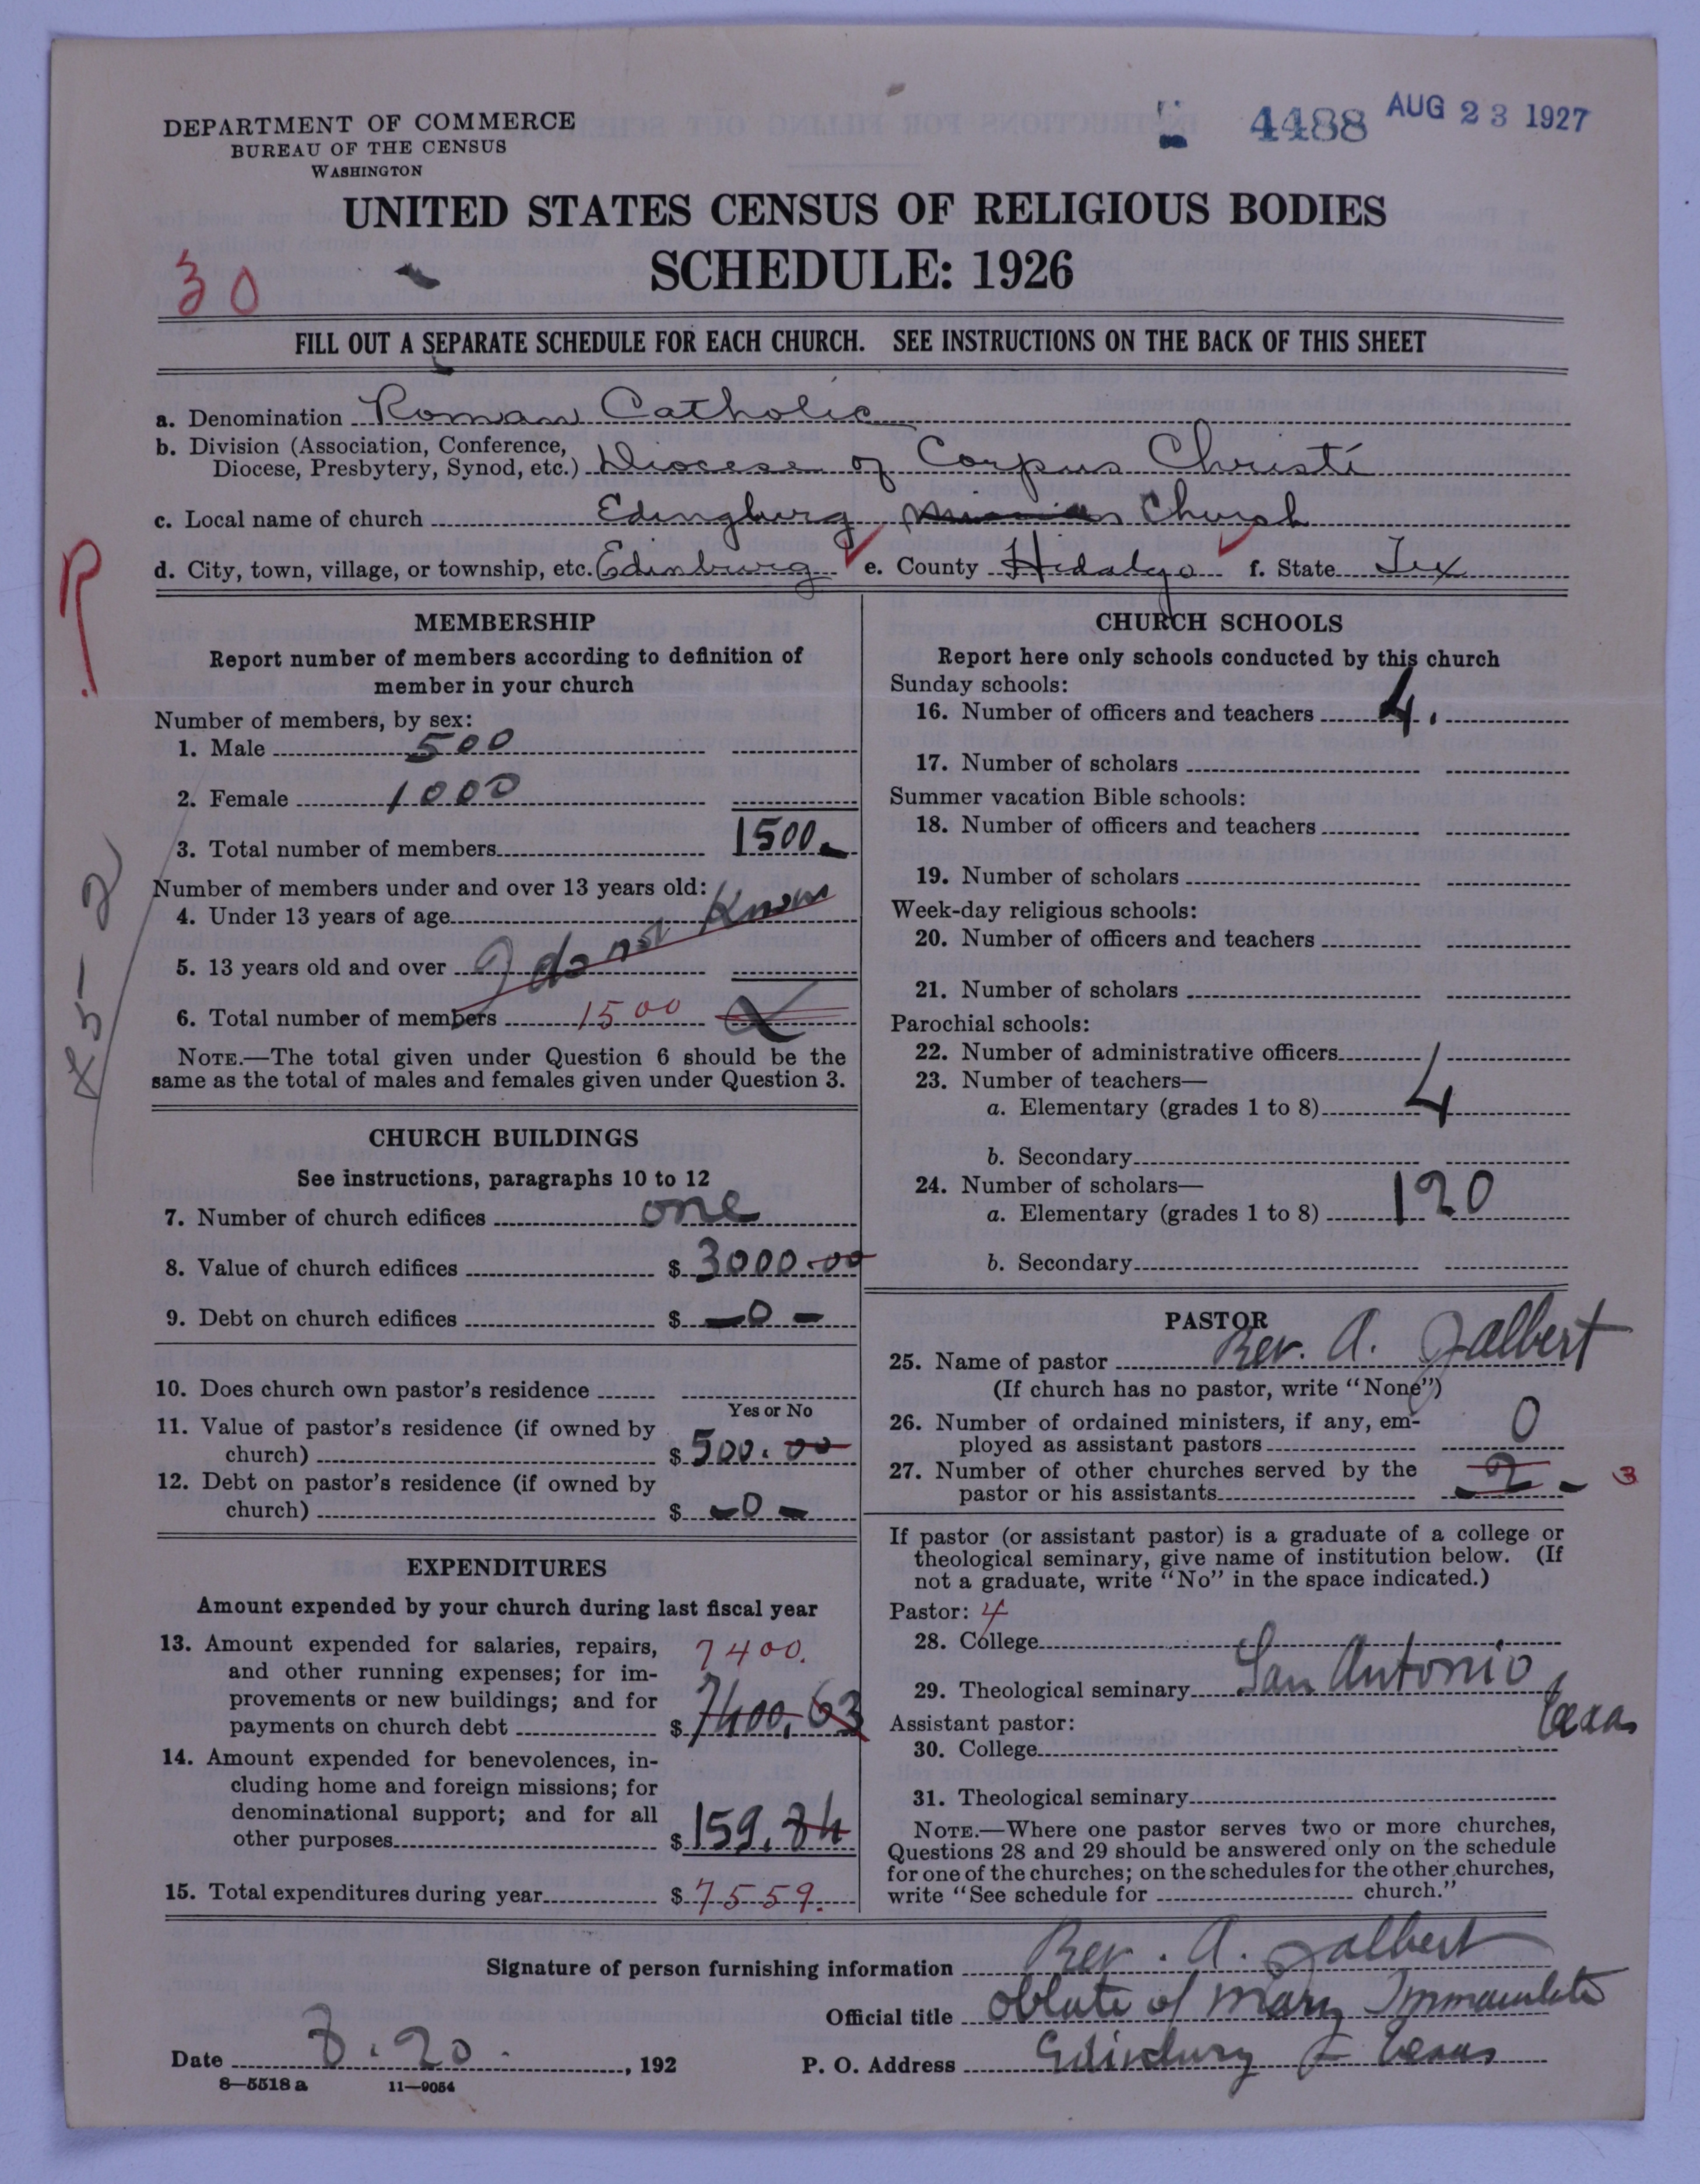 DEPARTMENT OF COMMERCE
BUREAU OF THE CENSUS
WASHINGTON
4488 AUG 23 1927
UNITED STATES CENSUS OF RELIGIOUS BODIES
SCHEDULE: 1926
30
FILL OUT A SEPARATE SCHEDULE FOR EACH CHURCH. SEE INSTRUCTIONS ON THE BACK OF THIS SHEET
a. Denomination Roman Catholic
b. Division (Association, Conference,
Diocese, Presbytery, Synod, etc.) Diocese of Corpus Christi
c. Local name of church Edingburg Church
d. City, town, village, or township, etc. Edinburg e. County Hidalgo f. State Tex
R
MEMBERSHIP
Report number of members according to definition of
member in your church
Number of members, by sex:
1. Male 500
2. Female 1000
3. Total number of members 1500
Number of members under and over 13 years old:
4. Under 13 years of age
5. 13 years old and over I do not Know
6. Total number of members 1500
NOTE.—The total given under Question 6 should be the
same as the total of males and females given under Question 3.
CHURCH BUILDINGS
See instructions, paragraphs 10 to 12
7. Number of church edifices one
8. Value of church edifices $ 3000.00
9. Debt on church edifices $ —0—
10. Does church own pastor's residence
Yes or No
11. Value of pastor's residence (if owned by
church) $ 500.00
12. Debt on pastor's residence (if owned by
church) $ —0—
EXPENDITURES
Amount expended by your church during last fiscal year
13. Amount expended for salaries, repairs, 7400.
and other running expenses; for im-
provements or new buildings; and for
payments on church debt $ 7400.63
14. Amount expended for benevolences, in-
cluding home and foreign missions; for
denominational support; and for all
other purposes $ 159.84
15. Total expenditures during year $ 7559.
CHURCH SCHOOLS
Report here only schools conducted by this church
Sunday schools:
16. Number of officers and teachers 4.
17. Number of scholars
Summer vacation Bible schools:
18. Number of officers and teachers
19. Number of scholars
Week-day religious schools:
20. Number of officers and teachers
21. Number of scholars
Parochial schools:
22. Number of administrative officers 1
23. Number of teachers—
a. Elementary (grades 1 to 8) 4
b. Secondary
24. Number of scholars—
a. Elementary (grades 1 to 8) 120
b. Secondary
PASTOR
25. Name of pastor Rev. A. Jalbert
(If church has no pastor, write "None")
26. Number of ordained ministers, if any, em-
ployed as assistant pastors 0
27. Number of other churches served by the
pastor or his assistants 2 3
If pastor (or assistant pastor) is a graduate of a college or
theological seminary, give name of institution below. (If
not a graduate, write "No" in the space indicated.)
Pastor: 4
28. College
29. Theological seminary San Antonio
Texas
Assistant pastor:
30. College
31. Theological seminary
NOTE.—Where one pastor serves two or more churches,
Questions 28 and 29 should be answered only on the schedule
for one of the churches; on the schedules for the other churches,
write "See schedule for church."
Signature of person furnishing information Rev. A. Jalbert
Official title Oblate of Mary Immaculate
Date 8.20. , 192 P. O. Address Edinburg Texas
8—5518 a 11—9054